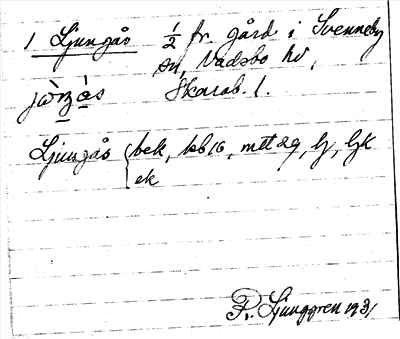 1 Ljungås ½ fr. gård i Svenneby
sn, Vadsbo hd,
Skarab. l.
Ljungås bek, kb 16, mtl 29, lj, ljk
ek
R. Ljunggren 1931